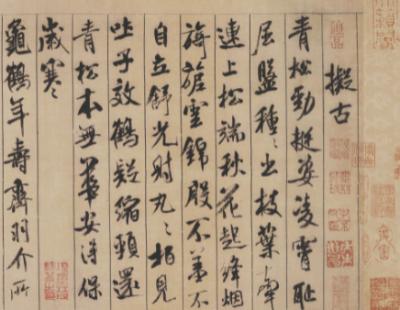 擬古
青松勁挺姿凌霄恥
屈盤種〻出枝葉牽
連上松端秋花起絳烟
旖旎雲錦殷不羞不
自立舒光射丸〻柏見
吐子效鶴疑縮頸還
青松本無華安得保
歲寒
龜鶴年壽齊羽介所